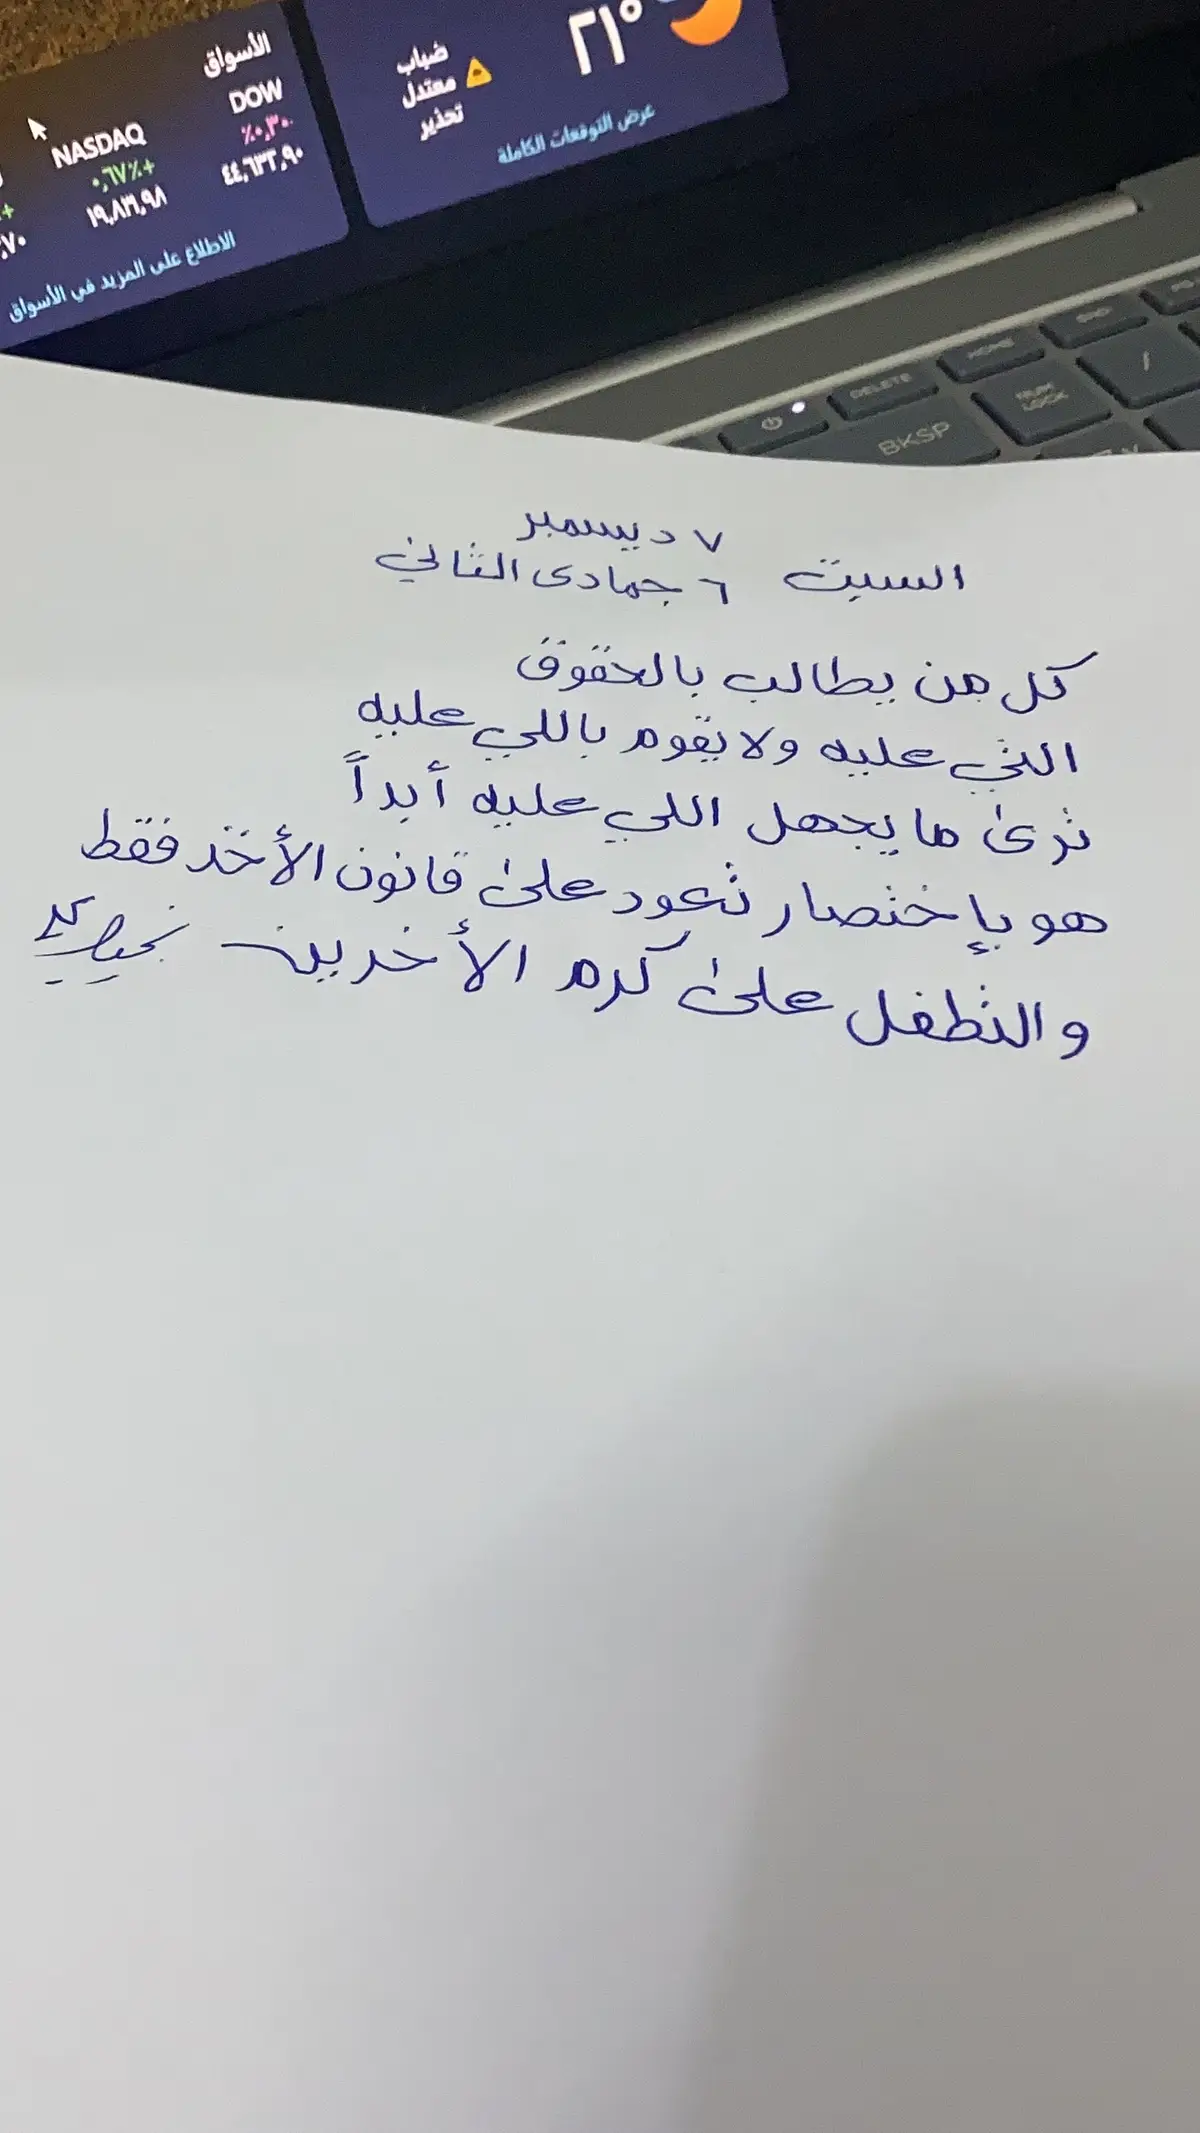 ٢١°
ضباب
معتدل
تحذير
عرض التوقعات الكاملة
الأسواق
DOW
٪٠,٣٠-
٤٤,٦٣٢,٩٠
NASDAQ
+٠,٦٧٪
الاطلاع على المزيد في الأسواق
DELETE
HOME
NUM
LOCK
/
BKSP
٧ ديسمبر
السبت
٦ جمادى الثاني
كل من يطالب بالحقوق
التي عليه ولا يقوم باللي عليه
ترى ما يجهل اللي عليه أبداً
هو بإختصار تعود على قانون الأخذ فقط
والتطفل على كرم الأخرين